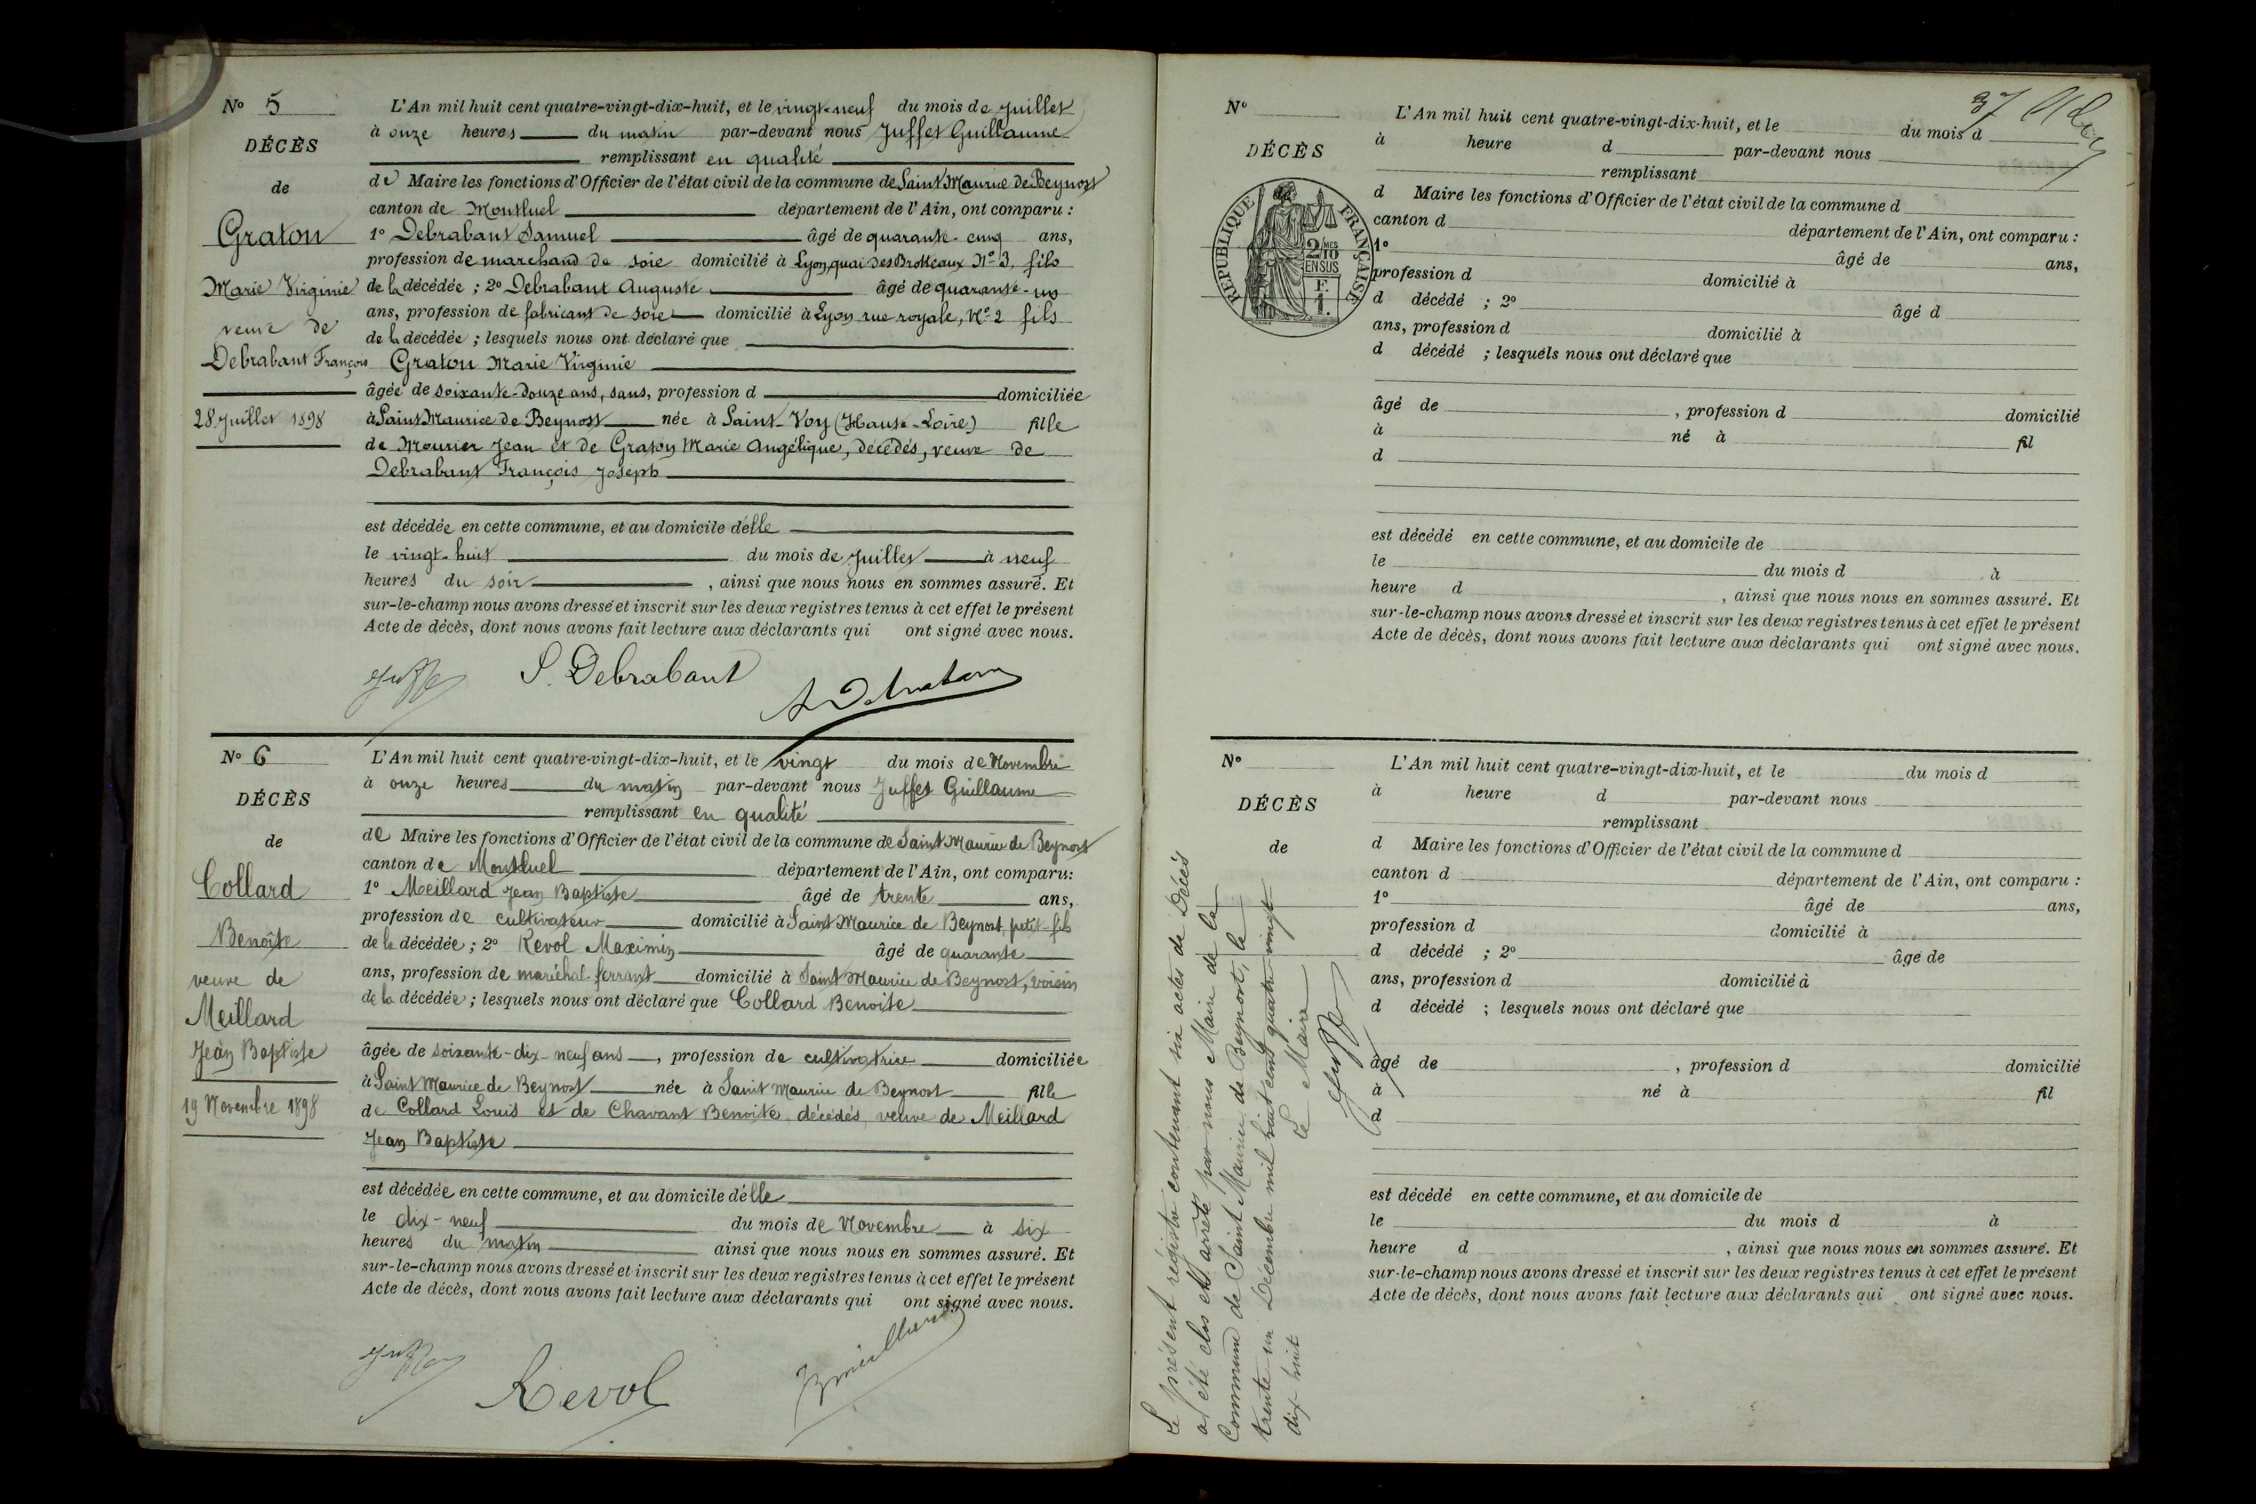 N° 5
DÉCÈS
de
Graton
Marie Virginie
veuve de
Debrabant François
28 Juillet 1898
L'An mil huit cent quatre-vingt-dix-huit, et le vingt-neuf du mois de Juillet
à onze heures du matin par-devant nous Juffet Guillaume
remplissant en qualité
de Maire les fonctions d'Officier de l'état civil de la commune de Saint Maurice de Beynost
canton de Montluel département de l'Ain, ont comparu :
1° Debrabant Samuel âgé de quarante-cinq ans,
profession de marchand de soie domicilié à Lyon, quai des Brotteaux N° 3, fils
de la décédée ; 2° Debrabant Auguste âgé de quarante-un
ans, profession de fabricant de soie domicilié à Lyon rue royale, N° 2 fils
de la décédée ; lesquels nous ont déclaré que
Graton Marie Virginie
âgée de soixante-douze ans, sans, profession d domiciliée
à Saint Maurice de Beynost née à Saint-Voy (Haute-Loire) fille
de Mourier Jean et de Graton Marie Angélique, décédés, veuve de
Debrabant François Joseph
est décédée en cette commune, et au domicile d'elle
le vingt-huit du mois de Juillet à neuf
heures du soir , ainsi que nous nous en sommes assuré. Et
sur-le-champ nous avons dressé et inscrit sur les deux registres tenus à cet effet le présent
Acte de décès, dont nous avons fait lecture aux déclarants qui ont signé avec nous.
Juffet S. Debrabant A Debrabant
N° 6
DÉCÈS
de
Collard
Benoîte
veuve de
Meillard
Jean Baptiste
19 Novembre 1898
L'An mil huit cent quatre-vingt-dix-huit, et le vingt du mois de Novembre
à onze heures du matin par-devant nous Juffet Guillaume
remplissant en qualité
de Maire les fonctions d'Officier de l'état civil de la commune de Saint Maurice de Beynost
canton de Montluel département de l'Ain, ont comparu :
1° Meillard Jean Baptiste âgé de trente ans,
profession de cultivateur domicilié à Saint Maurice de Beynost, petit-fils
de la décédée ; 2° Revol Maximin âgé de quarante
ans, profession de maréchal-ferrant domicilié à Saint Maurice de Beynost, voisin
de la décédée ; lesquels nous ont déclaré que Collard Benoite
âgée de soixante-dix-neuf ans , profession de cultivatrice domiciliée
à Saint Maurice de Beynost née à Saint Maurice de Beynost fille
de Collard Louis et de Chavant Benoite, décédés, veuve de Meillard
Jean Baptiste
est décédée en cette commune, et au domicile d'elle
le dix-neuf du mois de Novembre à six
heures du matin ainsi que nous nous en sommes assuré. Et
sur-le-champ nous avons dressé et inscrit sur les deux registres tenus à cet effet le présent
Acte de décès, dont nous avons fait lecture aux déclarants qui ont signé avec nous.
Juffet Revol Meillard
37
N°
DÉCÈS
de
RÉPUBLIQUE FRANÇAISE
2/10 MES
EN SUS
F.
1.
L'An mil huit cent quatre-vingt-dix-huit, et le du mois d
à heure d par-devant nous
remplissant
d Maire les fonctions d'Officier de l'état civil de la commune d
canton d département de l'Ain, ont comparu :
1° âgé de ans,
profession d domicilié à
d décédé ; 2° âgé d
ans, profession d domicilié à
d décédé ; lesquels nous ont déclaré que
âgé de , profession d domicilié
à né à fil
d
est décédé en cette commune, et au domicile de
le du mois d à
heure d , ainsi que nous nous en sommes assuré. Et
sur-le-champ nous avons dressé et inscrit sur les deux registres tenus à cet effet le présent
Acte de décès, dont nous avons fait lecture aux déclarants qui ont signé avec nous.
N°
DÉCÈS
de
L'An mil huit cent quatre-vingt-dix-huit, et le du mois d
à heure d par-devant nous
remplissant
d Maire les fonctions d'Officier de l'état civil de la commune d
canton d département de l'Ain, ont comparu :
1° âgé de ans,
profession d domicilié à
d décédé ; 2° âgé de
ans, profession d domicilié à
d décédé ; lesquels nous ont déclaré que
âgé de , profession d domicilié
à né à fil
d
est décédé en cette commune, et au domicile de
le du mois d à
heure d , ainsi que nous nous en sommes assuré. Et
sur-le-champ nous avons dressé et inscrit sur les deux registres tenus à cet effet le présent
Acte de décès, dont nous avons fait lecture aux déclarants qui ont signé avec nous.
Le présent registre contenant six actes de Décès
a été clos et arrêté par nous Maire de la
Commune de Saint Maurice de Beynost, le
trente un Décembre mil huit cent quatre vingt
dix huit
Le Maire
Juffet